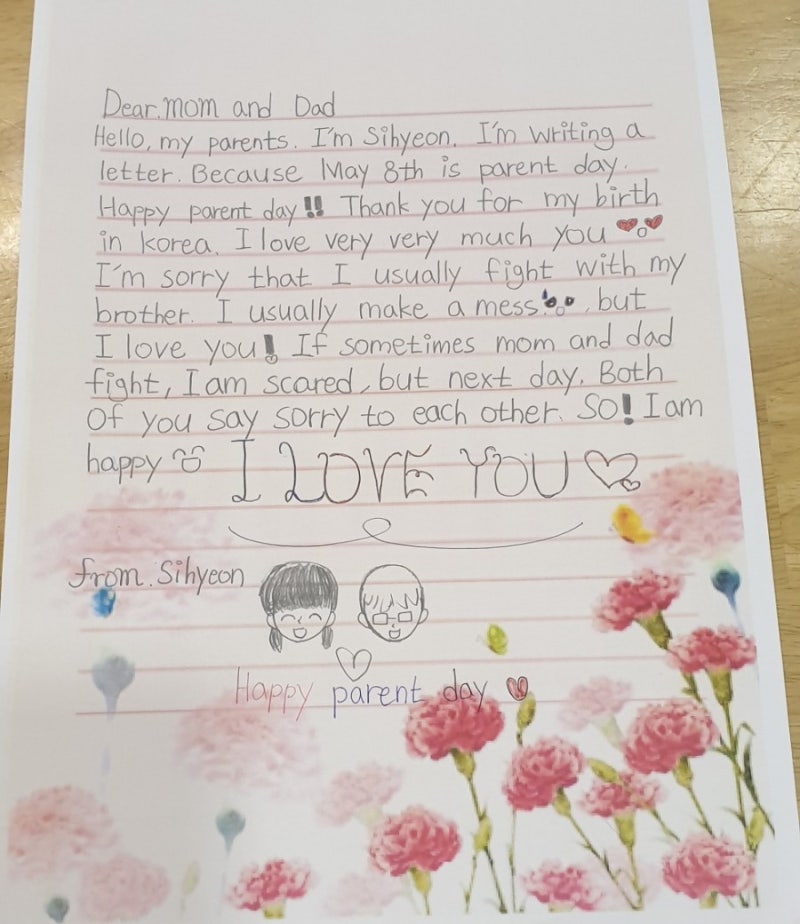 Dear. mom and Dad
Hello, my parents. I'm Sihyeon. I'm writing a
letter. Because May 8th is parent day.
Happy parent day!! Thank you for my birth
in korea. I love very very much you
I'm sorry that I usually fight with my
brother. I usually make a mess. but
I love you! If sometimes mom and dad
fight, I am scared, but next day. Both
Of you say sorry to each other. So! I am
happy I LOVE YOU
from. Sihyeon
Happy parent day